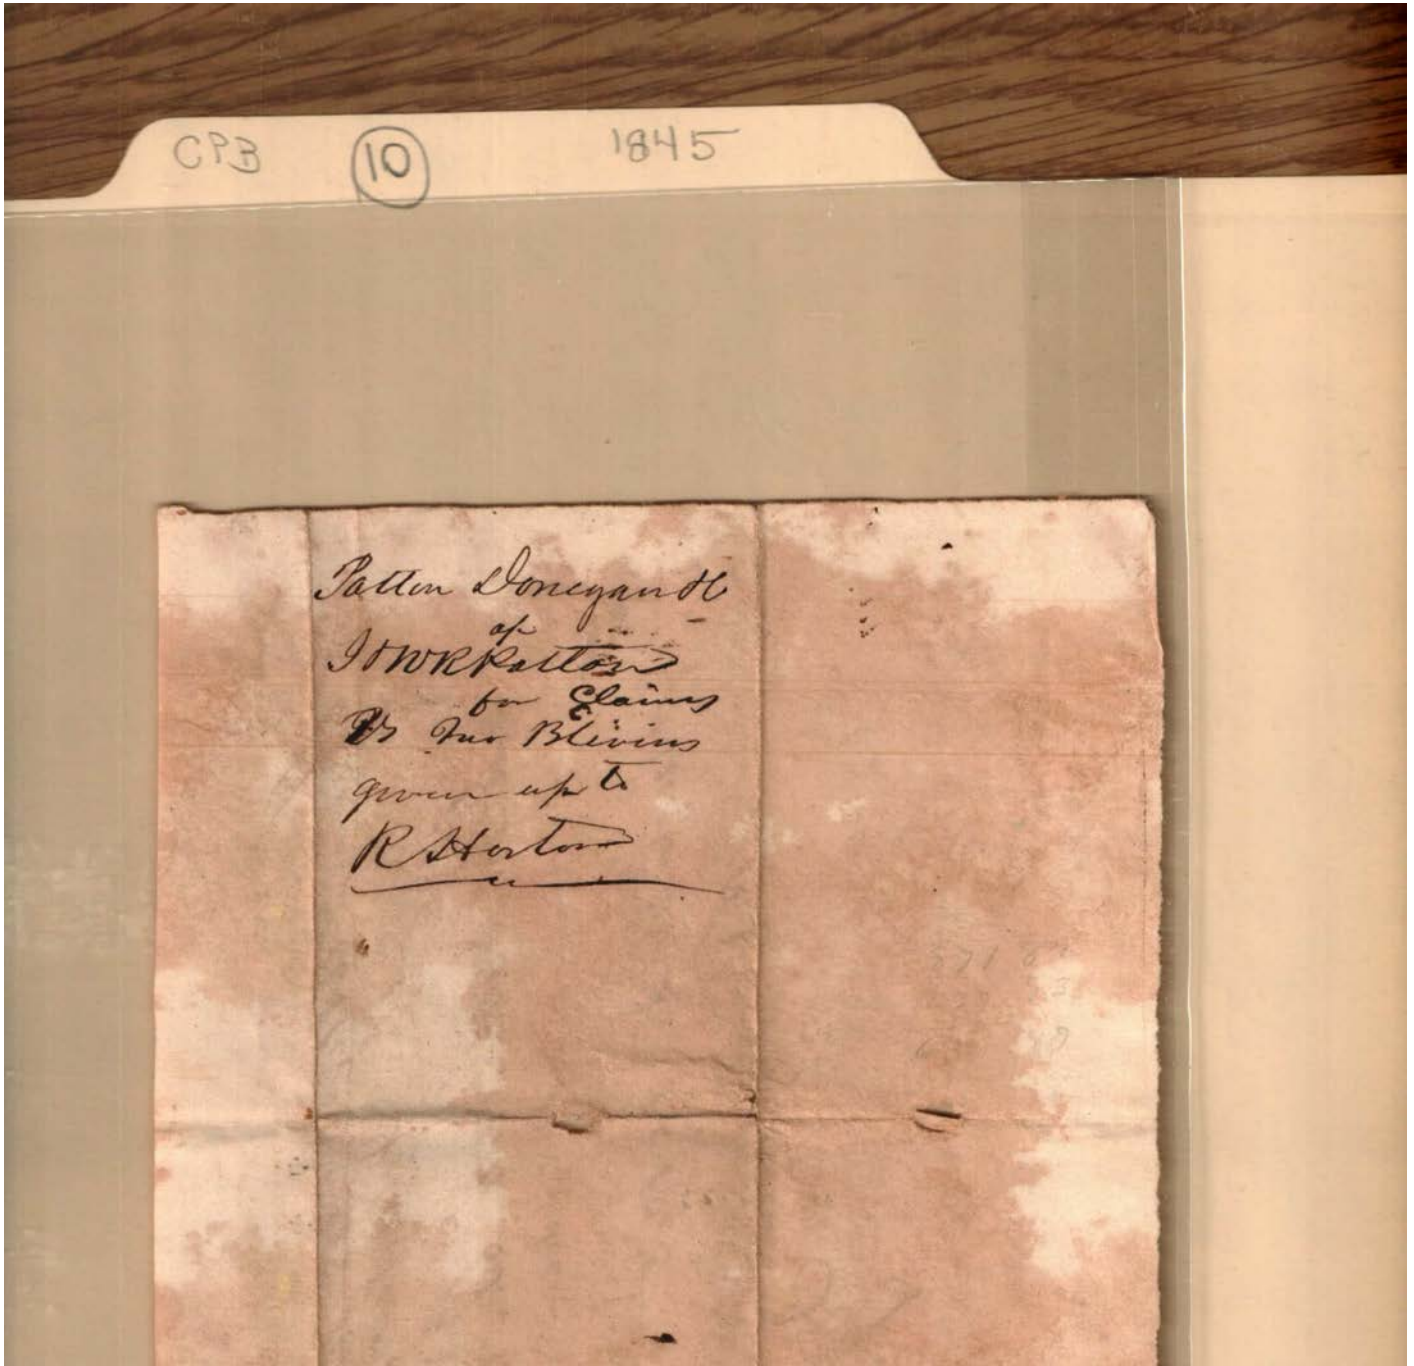 CPB 10 1845
Patton Donegan & Co
of
J & W R Patton
for Claims
vs Jno Blivins
given up to
R Horton